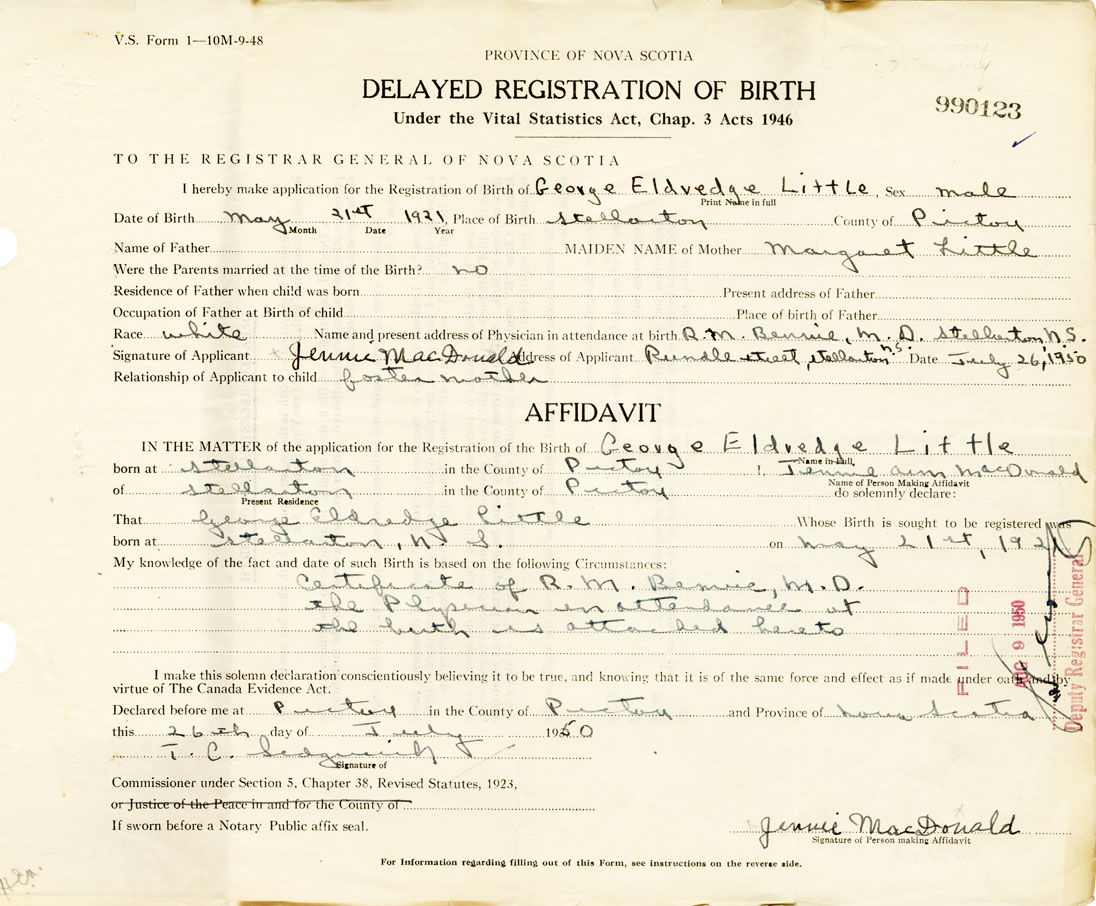 V.S. Form 1—10M-9-48
PROVINCE OF NOVA SCOTIA
DELAYED REGISTRATION OF BIRTH
990123
Under the Vital Statistics Act, Chap. 3 Acts 1946
TO THE REGISTRAR GENERAL OF NOVA SCOTIA
I hereby make application for the Registration of Birth of George Eldredge Little, Sex male
Print Name in full
Date of Birth May 21st 1921, Place of Birth Stellarton County of Pictou
Month Date Year
Name of Father MAIDEN NAME of Mother Margaret Little
Were the Parents married at the time of the Birth? no
Residence of Father when child was born Present address of Father
Occupation of Father at Birth of child Place of birth of Father
Race white Name and present address of Physician in attendance at birth R. M. Bennie, M. D. Stellarton, N.S.
Signature of Applicant x Jennie MacDonald Address of Applicant Rundle street, Stellarton N.S. Date July 26, 1950
Relationship of Applicant to child foster mother
AFFIDAVIT
IN THE MATTER of the application for the Registration of the Birth of George Eldredge Little
Name in full,
born at Stellarton in the County of Pictou I, Jennie Ann MacDonald
Name of Person Making Affidavit
of Stellarton in the County of Pictou do solemnly declare:
Present Residence
That George Eldredge Little Whose Birth is sought to be registered was
born at Stellarton, N. S. on May 21st, 1921
My knowledge of the fact and date of such Birth is based on the following Circumstances:
Certificate of R. M. Bennie, M. D.
the Physician in attendance at
the birth is attached hereto
FILED
AUG 9 1950
Deputy Registrar General
I make this solemn declaration conscientiously believing it to be true, and knowing that it is of the same force and effect as if made under oath and by
virtue of The Canada Evidence Act.
Declared before me at Pictou in the County of Pictou and Province of Nova Scotia
this 26th day of July 1950
T. C. Sedgwick
Signature of
Commissioner under Section 5, Chapter 38, Revised Statutes, 1923,
or Justice of the Peace in and for the County of
If sworn before a Notary Public affix seal.
Jennie MacDonald
Signature of Person making Affidavit
For Information regarding filling out of this Form, see instructions on the reverse side.